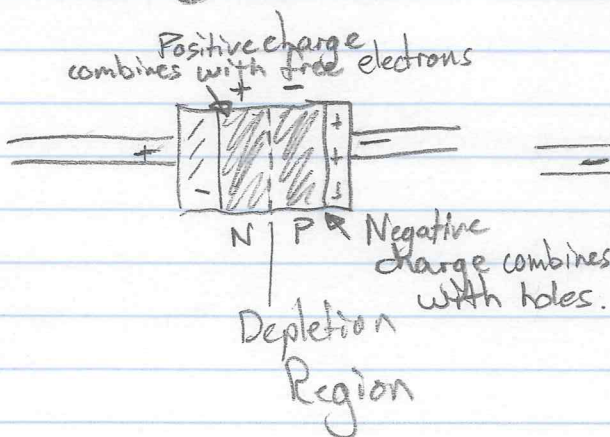 Positive charge
combines with free electrons
+ -
+ - + + -
N P
Negative
charge combines
with holes.
Depletion
Region